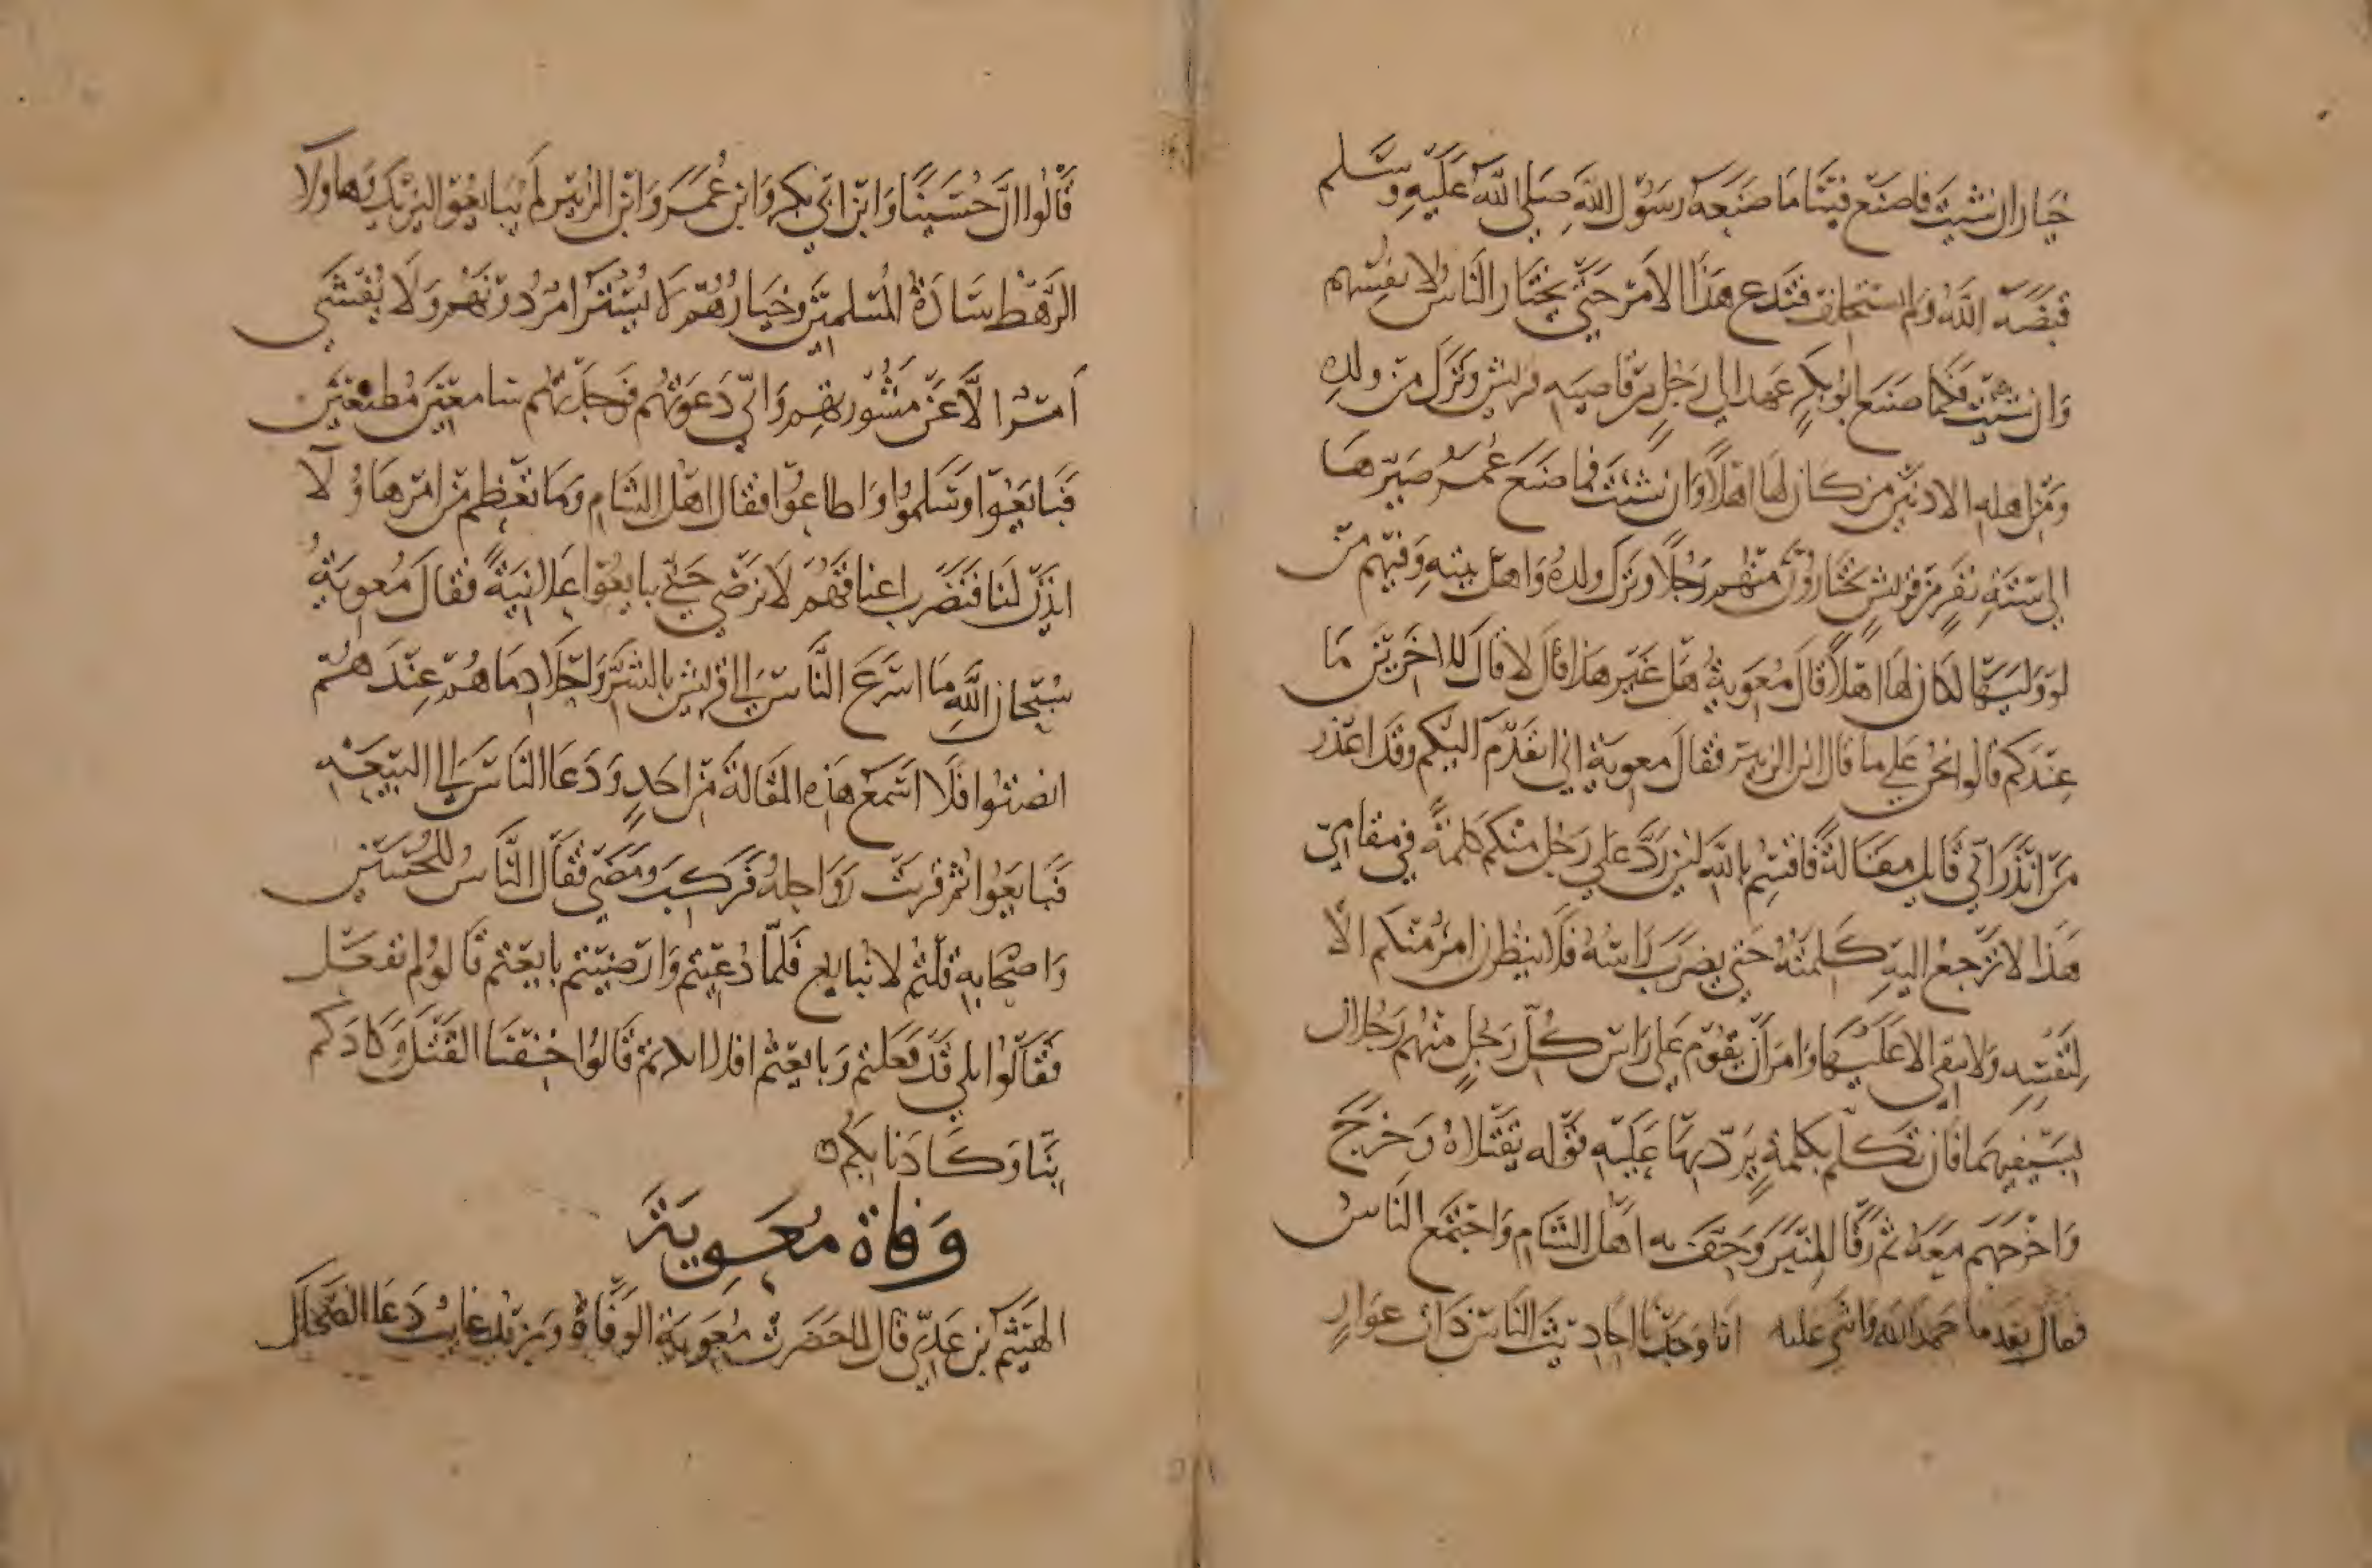 خيار ان شيت فاصنع فينا ما صنعه رسول الله صلى الله عليه وسلم
قبضه الله ولم يستخلف فتدع هذا الامر حتى يختار الناس لانفسهم
وان شيت فكما صنع ابو بكر عهد الى رجل من قاصيه قريش وترك من ولده
ومن اهله الادنين من كان لها اهلا وان شيت فما صنع عمر صيرها
الى ستة نفر من قريش يختارون منهم رجلا وترك ولده واهل بيته وفيهم من
لو وليها لكان لها اهلا قال معوية هل غير هذا قال لا قال للاخرين ما
عندكم قالوا نحن على ما قال ابن الزبير فقال معوية اني اتقدم اليكم وقد اعذر
من انذر اني قايل مقالة فاقسم بالله لين رد علي رجل منكم كلمة في مقامي
هذا لا ترجع اليه كلمته حتى يضرب راسه فلا ينظرن امر منكم الا
لنفسه ولا يبقي الا عليها وامر ان يقوم على راس كل رجل منهم رجلان
بسيفيهما فان تكلم بكلمة يرد بها عليه قوله يقتلاه وخرج
واخرجهم معه ثم رقا المنبر وحف به اهل الشام واجتمع الناس
فقال بعد ما حمد الله واثنى عليه انا وجدنا احاديث الناس ذات عوار
قالوا ان حسينا وابن ابي بكر وابن عمر وابن الزبير لم يبايعوا ليزيد وهاولا
الرهط سادة المسلمين وخيارهم لا يبتز امر دونهم ولا يقضى
امر الا عن مشورتهم واني دعوتهم فوجدتهم سامعين مطيعين
فبايعوا وسلموا واطاعوا فقال اهل الشام وما نعظم من امر هاولا
ايذن لنا فنضرب اعناقهم لا نرضى حتى يبايعوا علانية فقال معوية
سبحان الله ما اسرع الناس الى قريش بالشر واحلا دماهم عندهم
انصتوا فلا اسمع هذه المقالة من احد ودعا الناس الى البيعة
فبايعوا ثم قربت رواحله فركب ومضى فقال الناس للحسين
واصحابه قلتم لا نبايع فلما دعيتم وارضيتم بايعتم قالوا لم نفعل
فقالوا بلى قد فعلتم وبايعتم افلا انكرتم قالوا خفنا القتل وكادكم
بنا وكادنا بكم
وفاة معوية
الهيثم بن عدي قال لما حضرت معوية الوفاة ويزيد غايب دعا الضحاك